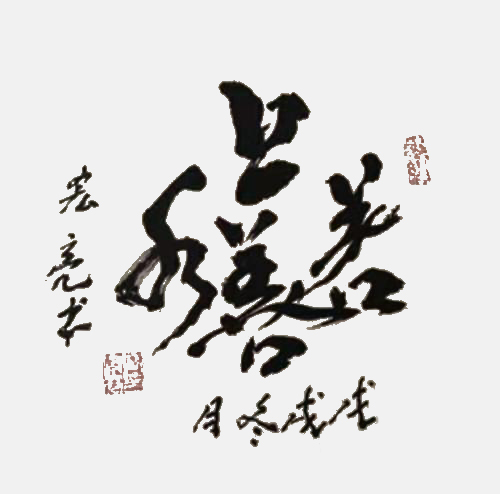 上善若水
戊戌冬月
宏亮书